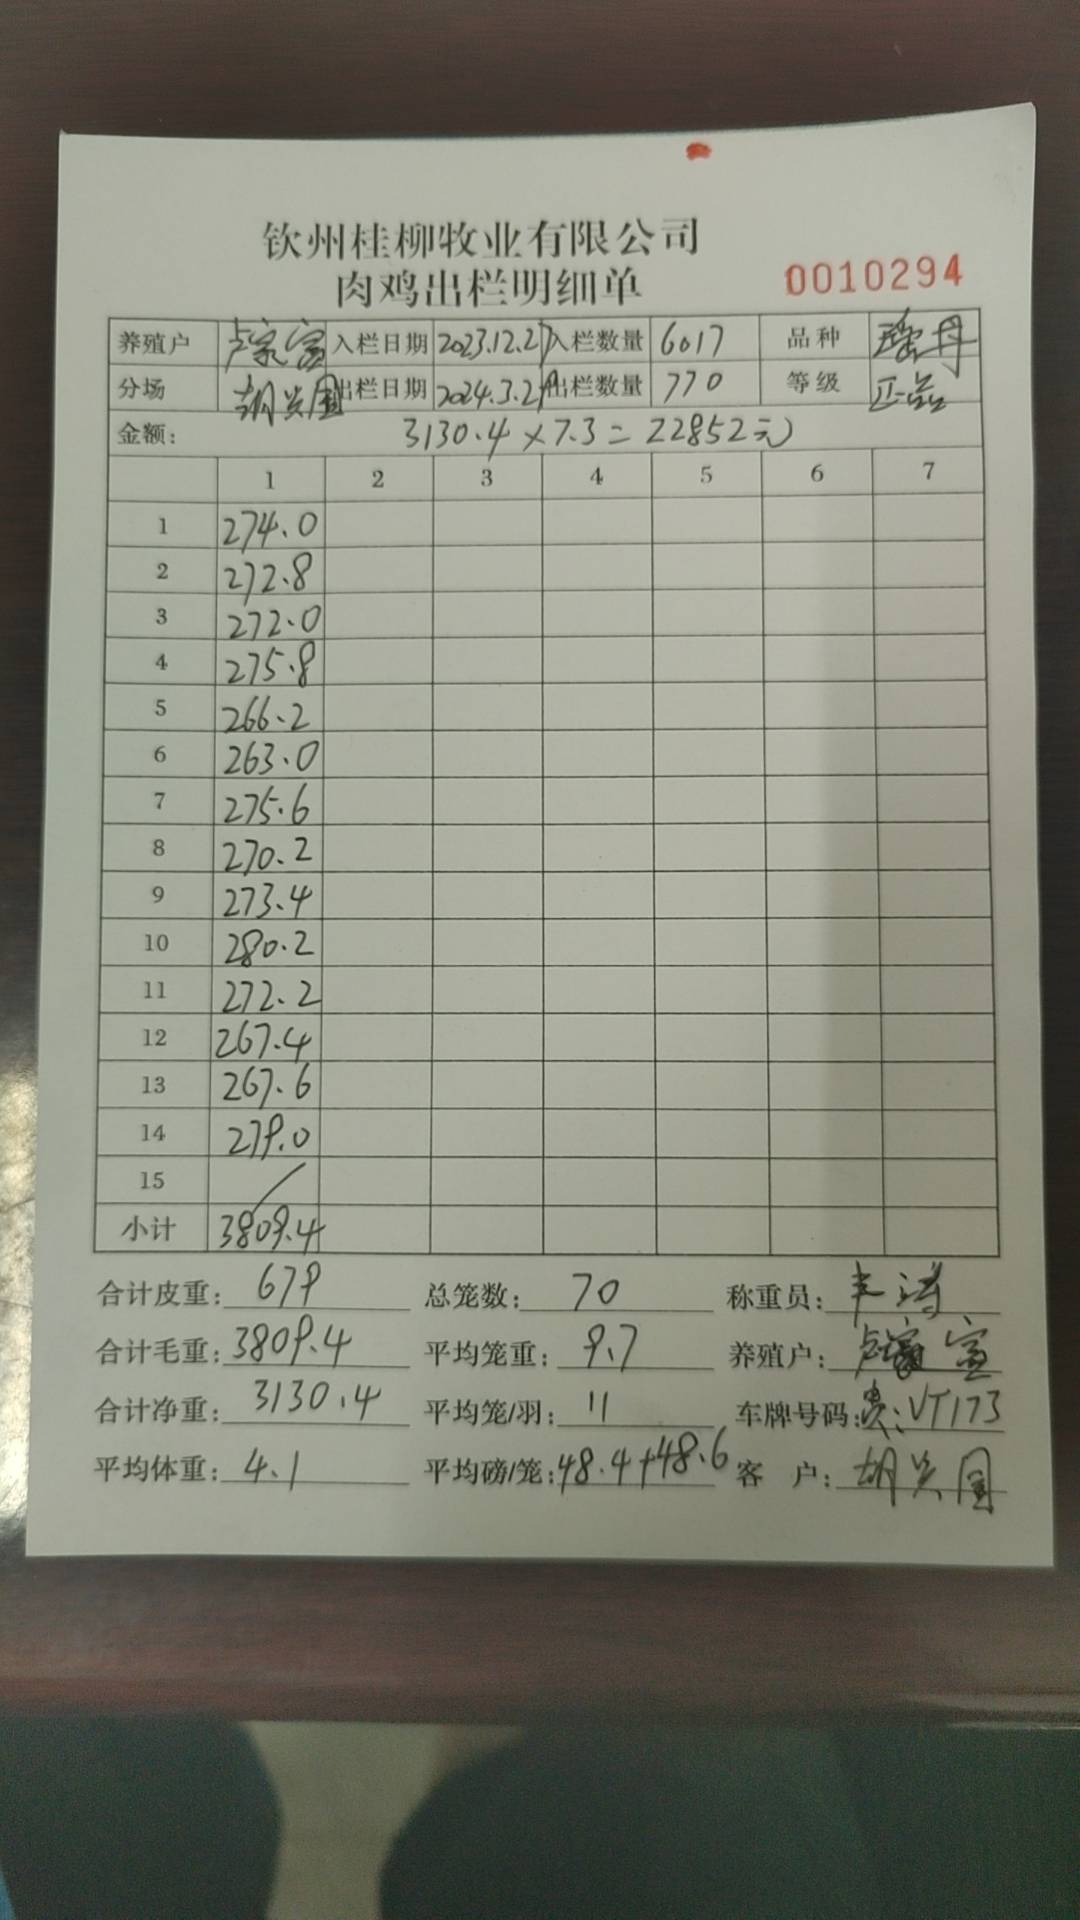 钦州桂柳牧业有限公司
肉鸡出栏明细单
0010294
养殖户 卢家富 入栏日期 2023.12.27 入栏数量 6017 品种 瑶丹
分场 胡兴国 出栏日期 2024.3.29 出栏数量 770 等级 正品
金额: 3130.4×7.3=22852元
1 2 3 4 5 6 7
1 274.0
2 272.8
3 272.0
4 275.8
5 266.2
6 263.0
7 275.6
8 270.2
9 273.4
10 280.2
11 272.2
12 267.4
13 267.6
14 279.0
15
小计 3809.4
合计皮重: 679 总笼数: 70 称重员:
合计毛重: 3809.4 平均笼重: 9.7 养殖户: 卢家富
合计净重: 3130.4 平均笼/羽: 11 车牌号码: 贵:VT173
平均体重: 4.1 平均磅/笼: 48.4+48.6 客 户: 胡兴国